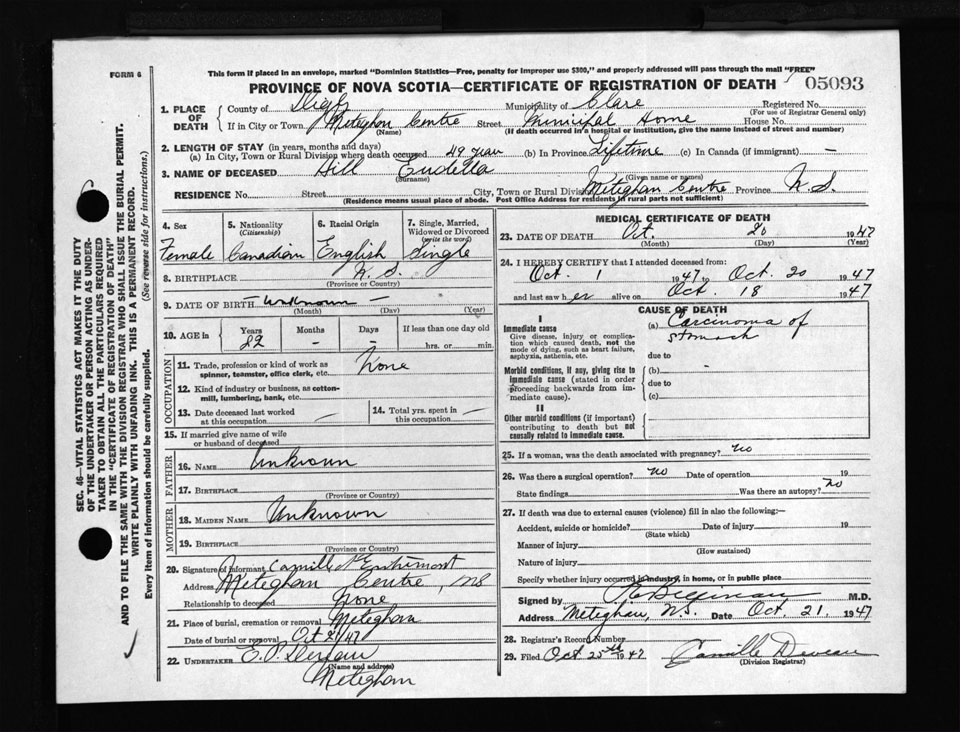 FORM 6
This form if placed in an envelope, marked "Dominion Statistics—Free, penalty for improper use $300," and properly addressed will pass through the mail "FREE"
PROVINCE OF NOVA SCOTIA—CERTIFICATE OF REGISTRATION OF DEATH
05093
1. PLACE OF DEATH
County of Digby Municipality of Clare Registered No.
(For use of Registrar General)
If in City or Town Meteghan Centre Street Municipal Home House No.
(Name) (If death occurred in a hospital or institution, give the name instead of street and number)
2. LENGTH OF STAY (in years, months and days)
(a) In City, Town or Rural Division where death occured 49 years (b) In Province Lifetime (c) In Canada (if immigrant) —
3. NAME OF DECEASED Hill Eudella
(Surname) (Given name or names)
RESIDENCE No. Street City, Town or Rural Division Meteghan Centre Province N.S.
(Residence means usual place of abode. Post Office Address for residents in rural parts not sufficient)
SEC. 46—VITAL STATISTICS ACT MAKES IT THE DUTY
OF THE UNDERTAKER OR PERSON ACTING AS UNDER-
TAKER TO OBTAIN ALL THE PARTICULARS REQUIRED
IN THE "CERTIFICATE OF REGISTRATION OF DEATH"
AND TO FILE THE SAME WITH THE DIVISION REGISTRAR WHO SHALL ISSUE THE BURIAL PERMIT.
WRITE PLAINLY WITH UNFADING INK. THIS IS A PERMANENT RECORD.
Every item of information should be carefully supplied. (See reverse side for instructions.)
4. Sex 5. Nationality (Citizenship) 6. Racial Origin 7. Single, Married, Widowed or Divorced (write the word)
Female Canadian English Single
8. BIRTHPLACE N.S.
(Province or Country)
9. DATE OF BIRTH — unknown —
(Month) (Day) (Year)
10. AGE in Years Months Days If less than one day old
82 — — hrs. or min.
OCCUPATION
11. Trade, profession or kind of work as spinner, teamster, office clerk, etc. None
12. Kind of industry or business, as cotton-mill, lumbering, bank, etc.
13. Date deceased last worked at this occupation — 14. Total yrs. spent in this occupation —
15. If married give name of wife or husband of deceased
FATHER
16. NAME Unknown
17. BIRTHPLACE
(Province or Country)
MOTHER
18. MAIDEN NAME Unknown
19. BIRTHPLACE
(Province or Country)
20. Signature of informant Camille d'Entremont
Address Meteghan Centre, NS
Relationship to deceased None
21. Place of burial, cremation or removal Meteghan
Date of burial or removal Oct 21/47
22. UNDERTAKER E. P.
(Name and address)
Meteghan
MEDICAL CERTIFICATE OF DEATH
23. DATE OF DEATH Oct. 20 1947
(Month) (Day) (Year)
24. I HEREBY CERTIFY that I attended deceased from:
Oct. 1 1947 to Oct. 20 1947
and last saw her alive on Oct. 18 1947
CAUSE OF DEATH
I
Immediate cause
Give disease, injury or complication which caused death, not the mode of dying, such as heart failure, asphyxia, asthenia, etc.
(a) Carcinoma of
stomach
due to
Morbid conditions, if any, giving rise to immediate cause (stated in order proceeding backwards from immediate cause).
(b) -
due to
(c)
II
Other morbid conditions (if important) contributing to death but not causally related to immediate cause.
25. If a woman, was the death associated with pregnancy? no
26. Was there a surgical operation? no Date of operation 19
State findings Was there an autopsy? no
27. If death was due to external causes (violence) fill in also the following:—
Accident, suicide or homicide? Date of injury 19
(State which)
Manner of injury
(How sustained)
Nature of injury
Specify whether injury occurred in industry, in home, or in public place
Signed by M.D.
Address Meteghan, N.S. Date Oct. 21 1947
28. Registrar's Record Number
29. Filed Oct 25th 1947 Camille Deveau
(Division Registrar)